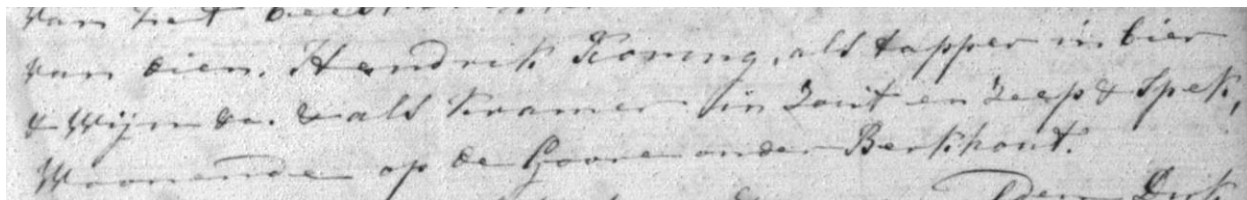 van het
van dien. Hendrik Koning, als tapper in bier
& Wijn &c. & als Kramer in Zout en Zeep & Spek,
Woonende op de Goorn onder Berkhout.
Dirk